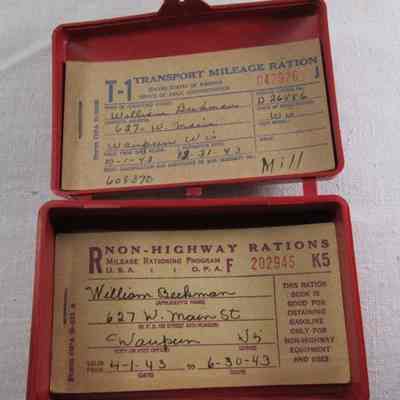 T-1 TRANSPORT MILEAGE RATION
United States of America
OFFICE OF PRICE ADMINISTRATION
042926 J
William Beekman
D 26486
627 W. Main
Waupun Wis
10-1-43 12-31-43
Mill
R NON-HIGHWAY RATIONS
MILEAGE RATIONING PROGRAM F 202945 K5
U.S.A. : : O.P.A.
William Beekman
(APPLICANT'S NAME)
627 W. Main St
Waupun Wis
CITY OR POST OFFICE
VALID FROM 4-1-43 TO 6-30-43
(DATE) (DATE)
THIS RATION
BOOK IS
GOOD FOR
OBTAINING
GASOLINE
ONLY FOR
NON-HIGHWAY
EQUIPMENT
AND USES